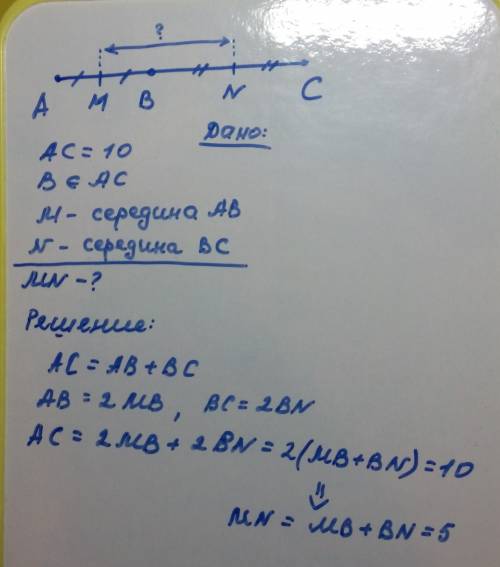 ?
A M B N C
Дано:
AC = 10
B ∈ AC
M - середина AB
N - середина BC
MN - ?
Решение:
AC = AB + BC
AB = 2MB, BC = 2BN
AC = 2MB + 2BN = 2(MB + BN) = 10
⇓
MN = MB + BN = 5